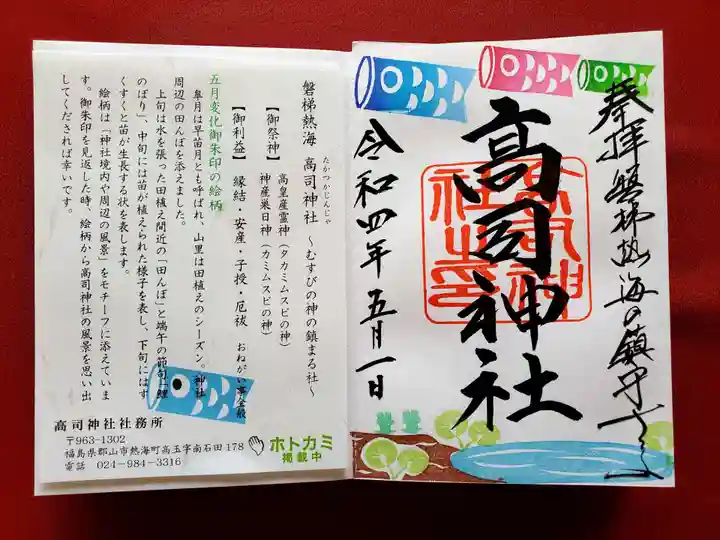 奉拝 磐梯熱海の鎮守
高司神社
令和四年五月一日
磐梯熱海 高司神社 ～むすびの神の鎮まる社～
たかつかじんじゃ
【御祭神】 高皇産霊神(タカミムスビの神)
神産巣日神(カミムスビの神)
【御利益】 縁結・安産・子授・厄祓 おねがい事全般
五月変化御朱印の絵柄
皐月は早苗月とも呼ばれ、山里は田植えのシーズン。神社
周辺の田んぼを添えました。
上旬は水を張った田植え間近の「田んぼ」と端午の節句「鯉
のぼり」、中旬には苗が植えられた様子を表し、下旬にはす
くすくと苗が生長する状を表します。
絵柄は「神社境内や周辺の風景」をモチーフに添えていま
す。御朱印を見返した時、絵柄から高司神社の風景を思い出
してくだされば幸いです。
高司神社社務所
〒963-1302
福島県郡山市熱海町高玉字南石田178
電話 024-984-3316
ホトカミ
掲載中